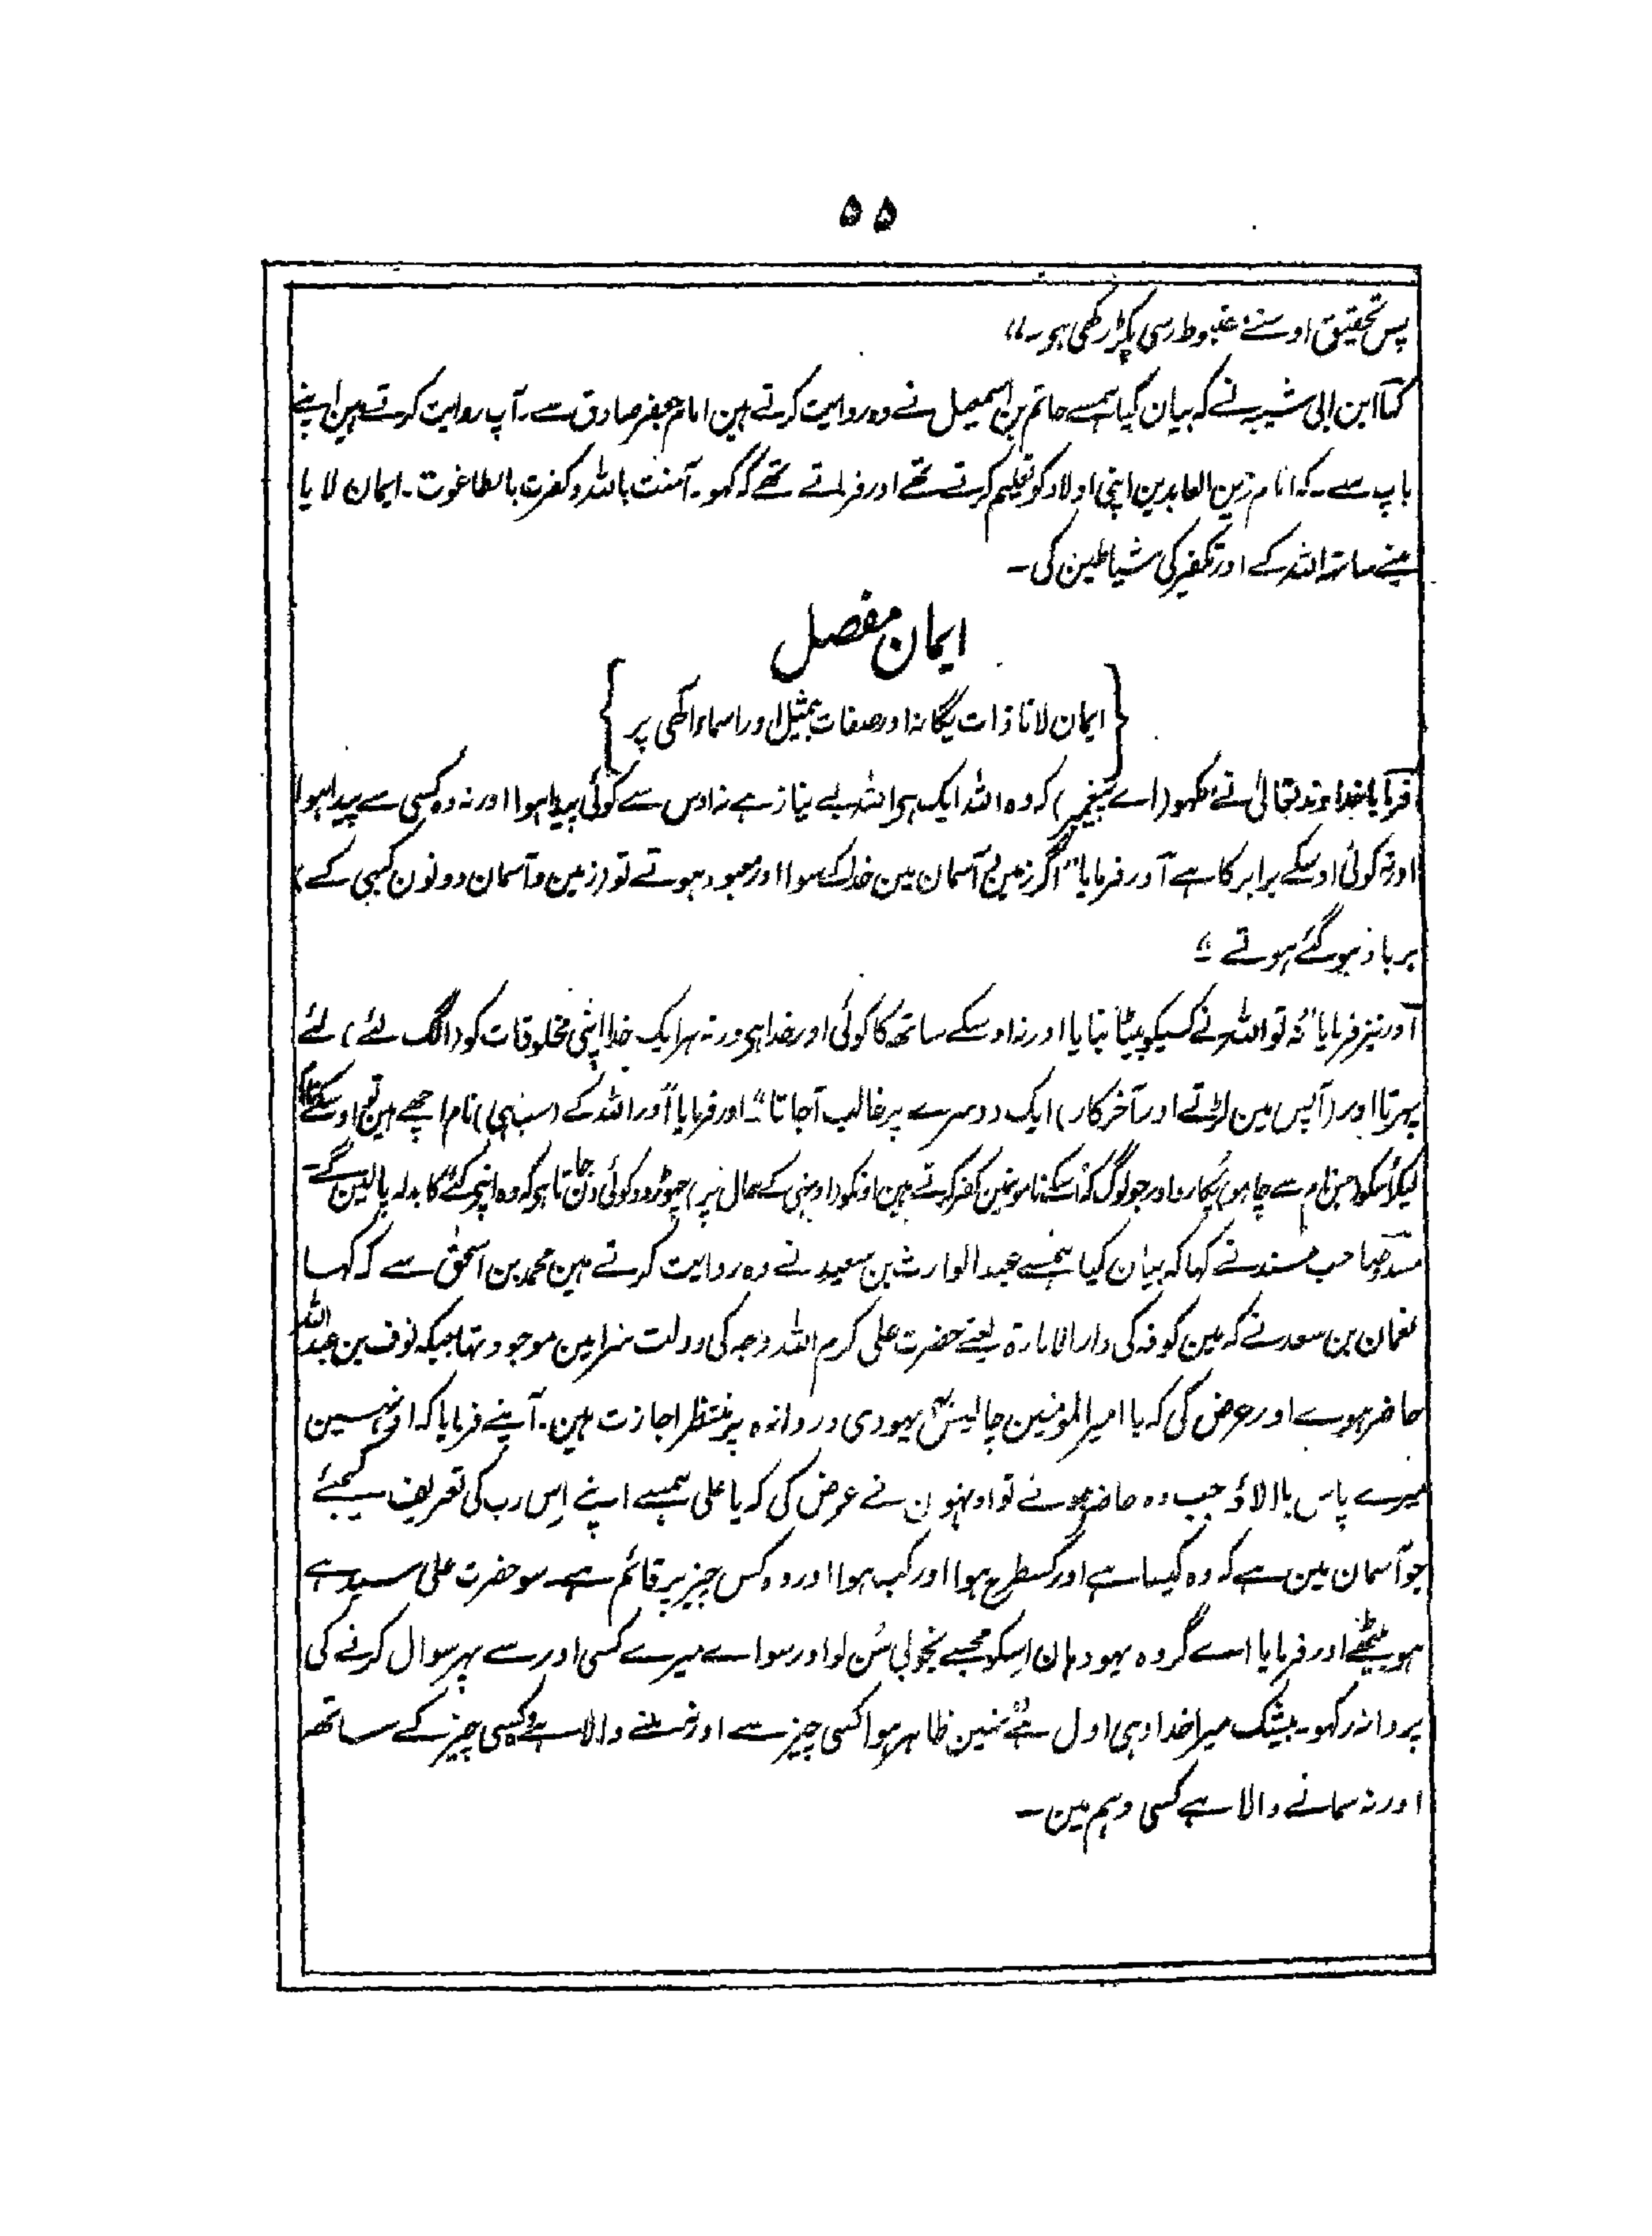 ۵۵
پس تحقیق اوسنے مضبوط رسی پکڑ رکھی ہو۔"
کہا ابن ابی شیبہ نے کہ بیان کیا ہمسے حاتم بن اسمعیل نے وہ روایت کرتے ہین امام جعفر صادق سے۔ آپ روایت کرتے ہین اپنے
باپ سے۔ کہ امام زین العابدین اپنی اولاد کو تعلیم کرتے تھے اور فرماتے تھے کہ کہو۔ آمنت باللہ وکفرت بالطاغوت۔ ایمان لایا
مینے ساتہ اللہ کے اور تکفیر کی شیاطین کی۔
ایمان مفصل
{ ایمان لانا ذات یگانہ اور صفات بیمثیل اور اسماء الٰہی پر }
فرمایا خداوند تعالیٰ نے کہو (اے پیغمبر) کہ وہ اللہ ایک ہی اللہ بے نیاز ہے نہ اوس سے کوئی پیدا ہوا اور نہ وہ کسی سے پیدا ہوا
اور نہ کوئی اوسکے برابر کا ہے اور فرمایا "اگر زمین و آسمان مین خدا کے سوا اور معبود ہوتے تو (زمین و آسمان دونون کبہی کے)
برباد ہو گئے ہوتے"
اور نیز فرمایا "نہ تو اللہ نے کسیکو بیٹا بنایا اور نہ اوسکے ساتھ کا کوئی اور خدا ہی ورنہ ہر ایک خدا اپنی مخلوقات کو (الگ لئے) لئے
پہرتا اور (آپس مین لڑتے اور آخرکار) ایک دوسرے پر غالب آجاتا" اور فرمایا "اور اللہ کے (سب ہی) نام اچھے ہین تو اوسکے نام
لیکر اُسکو (جس نام سے چاہو) پُکارو اور جو لوگ کہ اُسکے نامونمین کفر کرتے ہین اونکو (اونہی کے حال پر) چھوڑ دو کوئی دن جاتا ہی کہ وہ اپنے کئے کا بدلہ پالینگے۔
مسدّد صاحب مسند نے کہا کہ بیان کیا ہمسے عبدالوارث بن سعید نے وہ روایت کرتے ہین محمد بن اسحٰق سے کہ کہا
نعمان بن سعد نے کہ مین کوفہ کی دارالامارۃ یعنے حضرت علی کرم اللہ وجہ کی دولت سرا مین موجود تہا جبکہ نوف بن عبداللہ
حاضر ہوے اور عرض کی کہ یا امیر المومنین چالیس یہودی دروازہ پر منتظر اجازت ہین۔ آپنے فرمایا کہ اونہین
میرے پاس بالاؤ جب وہ حاضر ہوئے تو اونہون نے عرض کی کہ یا علی ہمسے اپنے اِس رب کی تعریف کیجئے
جو آسمان مین ہے کہ وہ کیسا ہے اور کسطرح ہوا اور کب ہوا اور وہ کس چیز پر قائم ہے۔ سو حضرت علی سیدہے
ہو بیٹھے اور فرمایا اے گروہ یہود ہان اِسکو مجھسے بخوبی سُن لو اور سواے میرے کسی اور سے پہر سوال کرنے کی
پروا نہ رکہو۔ بیشک میرا خدا وہی اول ہے نہین ظاہر ہوا کسی چیز سے اور نہ ملنے والا ہے وہ کسی چیز کے ساتھ
اور نہ سمانے والا ہے کسی وہم مین۔